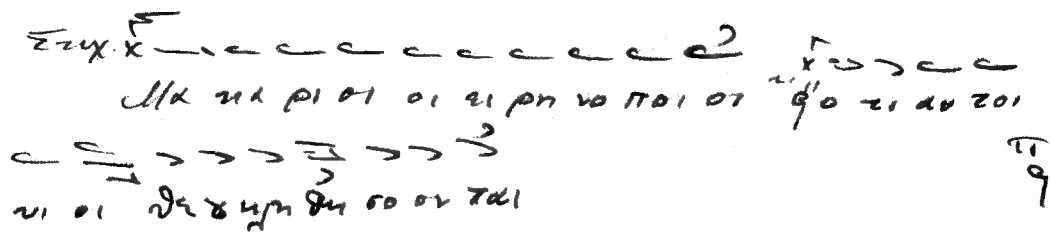 Στιχ.
Μα κα ρι οι οι ει ρη νο ποι οι ο τι αυ τοι
υι οι θε ȣ κλη θη σο ον ται